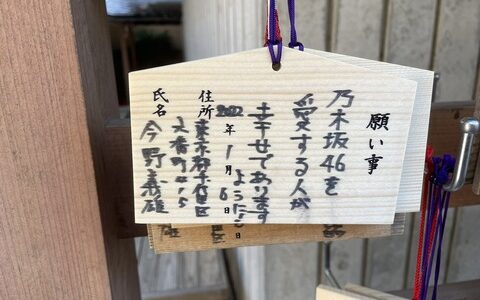 願い事
乃木坂46を
愛する人が
幸せであります
ように
年1月6日
住所 東京都千代田区
六番町4-5
氏名 今野義雄